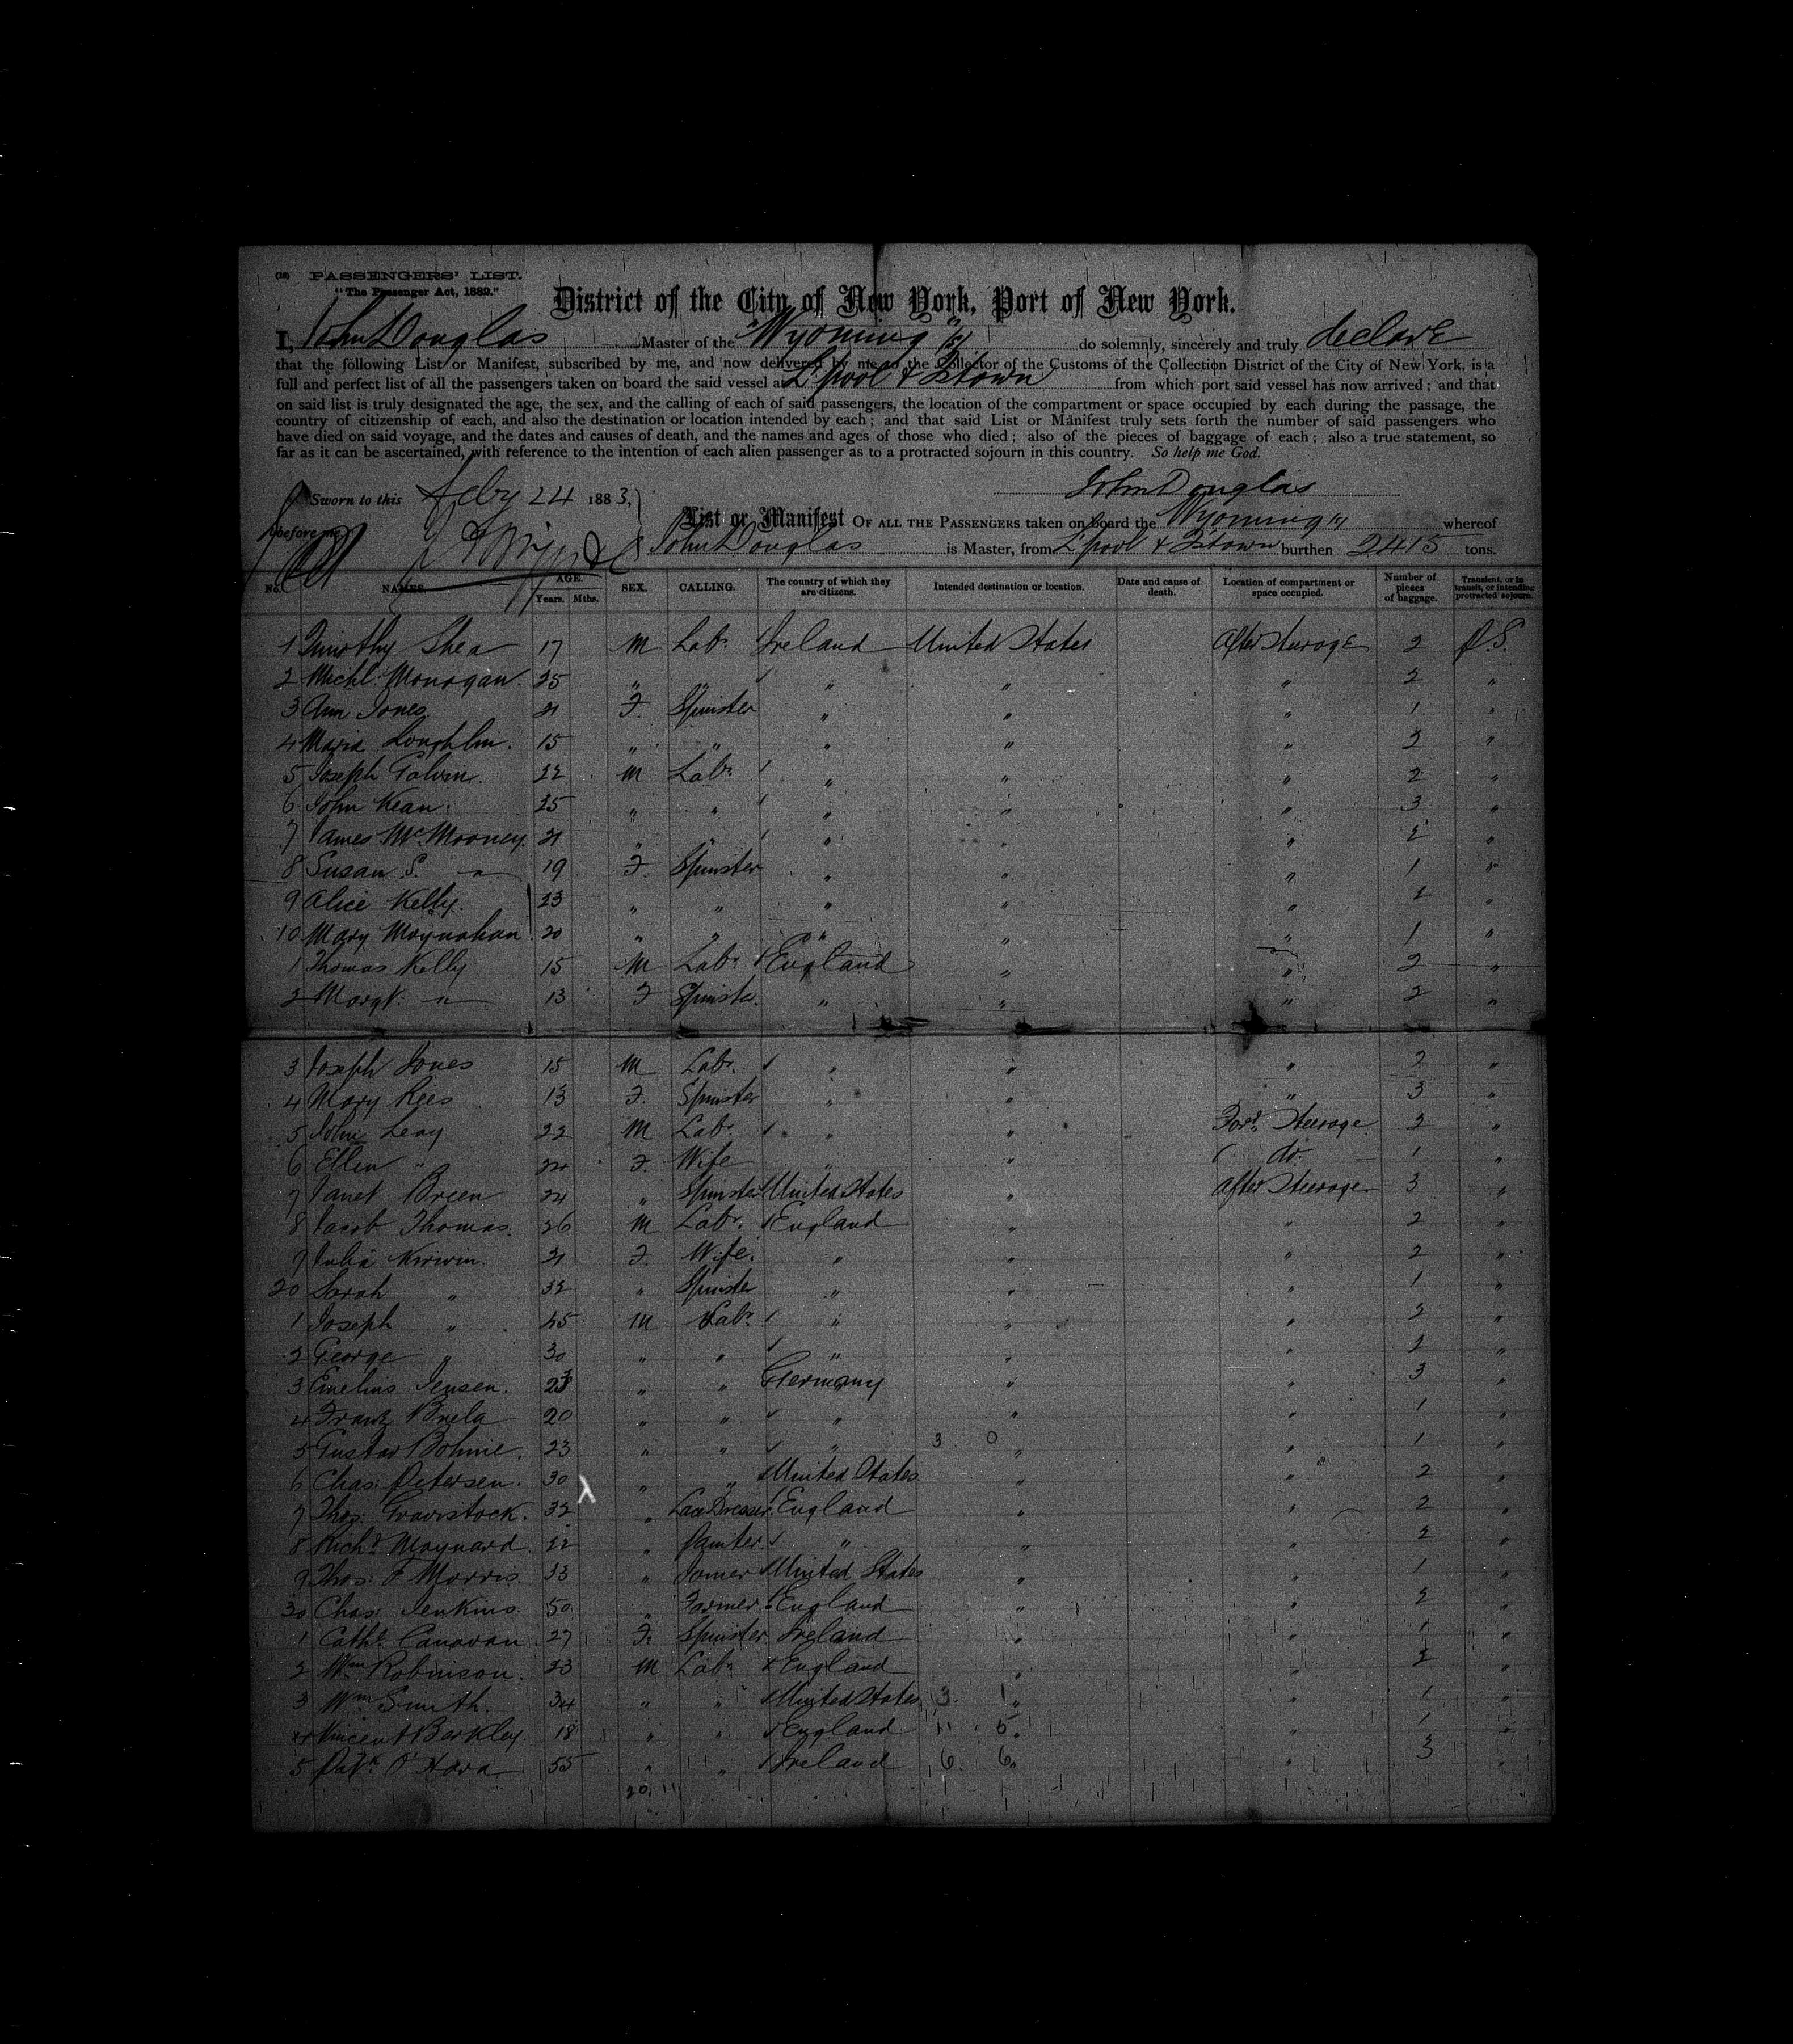 (18) PASSENGERS' LIST.
"The Passenger Act, 1882."
District of the City of New York, Port of New York.
I, John Douglas Master of the "Wyoming" do solemnly, sincerely and truly declare
that the following List or Manifest, subscribed by me, and now delivered by me to the Collector of the Customs of the Collection District of the City of New York, is a
full and perfect list of all the passengers taken on board the said vessel at L'pool & Qtown from which port said vessel has now arrived; and that
on said list is truly designated the age, the sex, and the calling of each of said passengers, the location of the compartment or space occupied by each during the passage, the
country of citizenship of each, and also the destination or location intended by each; and that said List or Manifest truly sets forth the number of said passengers who
have died on said voyage, and the dates and causes of death, and the names and ages of those who died; also of the pieces of baggage of each; also a true statement, so
far as it can be ascertained, with reference to the intention of each alien passenger as to a protracted sojourn in this country. So help me God.
Sworn to this Feby 24 1883, John Douglas
before me
List or Manifest OF ALL THE PASSENGERS taken on board the Wyoming whereof
John Douglas is Master, from L'pool & Qtown burthen 2415 tons.
No. NAMES. AGE. Years. Mths. SEX. CALLING. The country of which they are citizens. Intended destination or location. Date and cause of death. Location of compartment or space occupied. Number of pieces of baggage. Transient, or in transit, or intending protracted sojourn.
1 Timothy Shea 17 M Labr Ireland United States After Steerage 2 P.S.
2 Michl. Monogan 25 " " " " " 2 "
3 Ann Jones 21 F. Spinster " " " 1 "
4 Maria Loughlin 15 " " " " " 2 "
5 Joseph Galvin 22 M Labr " " " 2 "
6 John Kean 25 " " " " " 3 "
7 James McMooney 21 " " " " " 2 "
8 Susan S. " 19 F. Spinster " " " 1 "
9 Alice Kelly 23 " " " " " 2 "
10 Mary Moynahan 20 " " " " " 1 "
1 Thomas Kelly 15 M Labr England " " 2 "
2 Margt. " 13 F Spinster " " " 2 "
3 Joseph Jones 15 M Labr. " " " 2 "
4 Mary Rees 13 F. Spinster " " " 3 "
5 John Leay 22 M Labr " " Ford. Steerage 2 "
6 Ellen " 24 F. Wife " " do. 1 "
7 Janet Breen 24 " Spinster United States " After Steerage 3 "
8 Jacob Thomas 26 M Labr. England " " 2 "
9 Julia Kirwin 21 F. Wife " " " 2 "
20 Sarah " 32 " Spinster " " " 1 "
1 Joseph " 45 M Labr " " " 2 "
2 George " 30 " " " " " 2 "
3 Emelius Jensen 23 " " Germany " " 3 "
4 Franz Brela 20 " " " " " 1 "
5 Gustav Bohme 23 " " " 3 0 " " 1 "
6 Chas. Petersen 30 " " United States " " 2 "
7 Thos. Gravistock 32 " Lace Dresser England " " 2 "
8 Richd Maynard 22 " Painter " " " 2 "
9 Thos. F Morris 33 " Joiner United States " " 1 "
30 Chas. Jenkins 50 " Farmer England " " 2 "
1 Cathe. Canavan 27 F. Spinster Ireland " " 1 "
2 Wm Robinson 23 M Labr England " " 2 "
3 Wm Smith 34 " " United States 3 1 " " 1 "
4 Vincent Berkley 18 " " England 11 5 " " 1 "
5 Patk O'Hara 55 " " Ireland 6 6 " " 3 "
20. 11